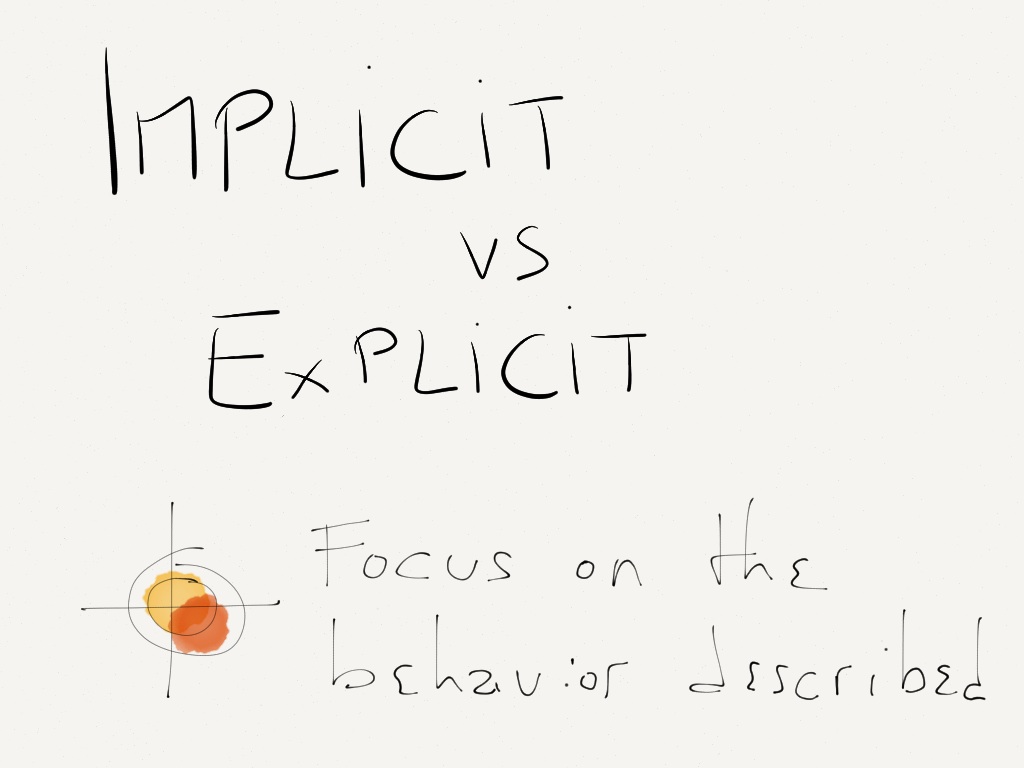 IMPLICIT
vs
EXPLICIT
Focus on the
behavior described